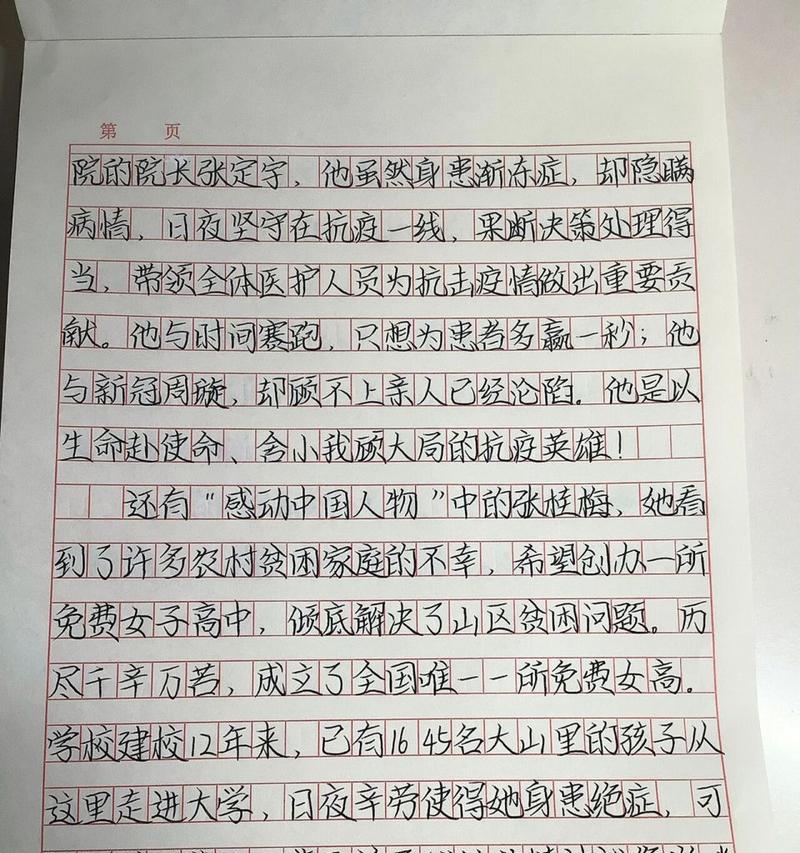 第 页
院的院长张定宇，他虽然身患渐冻症，却隐瞒
病情，日夜坚守在抗疫一线，果断决策处理得
当，带领全体医护人员为抗击疫情做出重要贡
献。他与时间赛跑，只想为患者多赢一秒；他
与新冠周璇，却顾不上亲人已经沦陷。他是以
生命赴使命、舍小我顾大局的抗疫英雄！
还有“感动中国人物”中的张桂梅，她看
到了许多农村贫困家庭的不幸，希望创办一所
免费女子高中，倾底解决了山区贫困问题。历
尽千辛万苦，成立了全国唯一一所免费女高。
学校建校12年来，已有1645名大山里的孩子从
这里走进大学，日夜辛劳使得她身患绝症，可